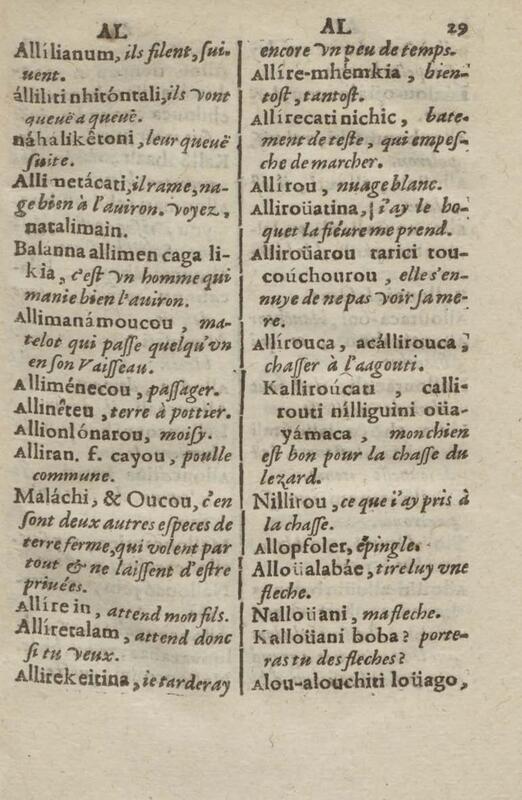 AL
Allílianum, ils filent, sui-
uent.
álliliti nhitóntali, ils vont
queuë a queuë.
náhalikêtoni, leur queuë
suite.
Allinetácati, il rame, na-
ge bien à l'auiron. voyez,
natalimain.
Balanna allimen caga li-
kia, c'est vn homme qui
manie bien l'auiron.
Allimanámoucou, ma-
telot qui passe quelqu'vn
en son Vaisseau.
Alliménecou, passager.
Allinêteu, terre à pottier.
Allionlónarou, moisy.
Alliran. f. cayou, poulle
commune.
Maláchi, & Oucou, c'en
sont deux autres especes de
terre ferme, qui volent par
tout & ne laissent d'estre
priuées.
Allíre in, attend mon fils.
Allíretalam, attend donc
si tu veux.
Allirekeitina, ie tarderay
AL 29
encore vn peu de temps.
Allíre-mhémkia, bien-
tost, tantost.
Allirecati nichic, bate-
ment de teste, qui empes-
che de marcher.
Allírou, nuage blanc.
Alliroüatina, i'ay le ho-
quet la fiéure me prend.
Alliroüarou tarici tou-
coúchourou, elle s'en-
nuye de ne pas voir sa me-
re.
Allírouca, acállirouca,
chasser à l'aagouti.
Kalliroúcati, calli-
routi nílliguini oüa-
yámaca, mon chien
est bon pour la chasse du
lezard.
Nillirou, ce que i'ay pris à
la chasse.
Allopfoler, épingle.
Alloüalabáe, tire luy vne
fleche.
Nalloüani, ma fleche.
Kalloüani boba? porte-
ras tu des fleches?
Alou-alouchiti loüago,